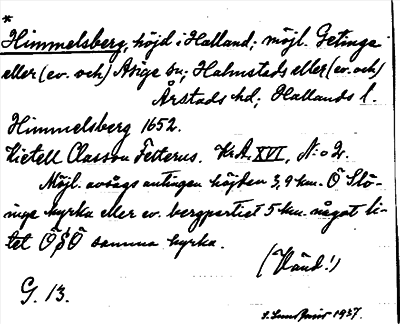 *
Himmelsberg, höjd i Halland; möjl. Getinge
eller (ev. och) Asige sn; Halmstads eller (ev. och)
Årstads hd; Hallands l.
Himmelsberg 1652.
Kietell Classon Felterus. Kr.A. XVI, N:o 2.
Möjl. avsågs antingen höjden 3,9 km. Ö Slö-
inge kyrka eller ev. bergpartiet 5 km. något li-
tet ÖSÖ samma kyrka.
(Vänd!)
G. 13.
1937.